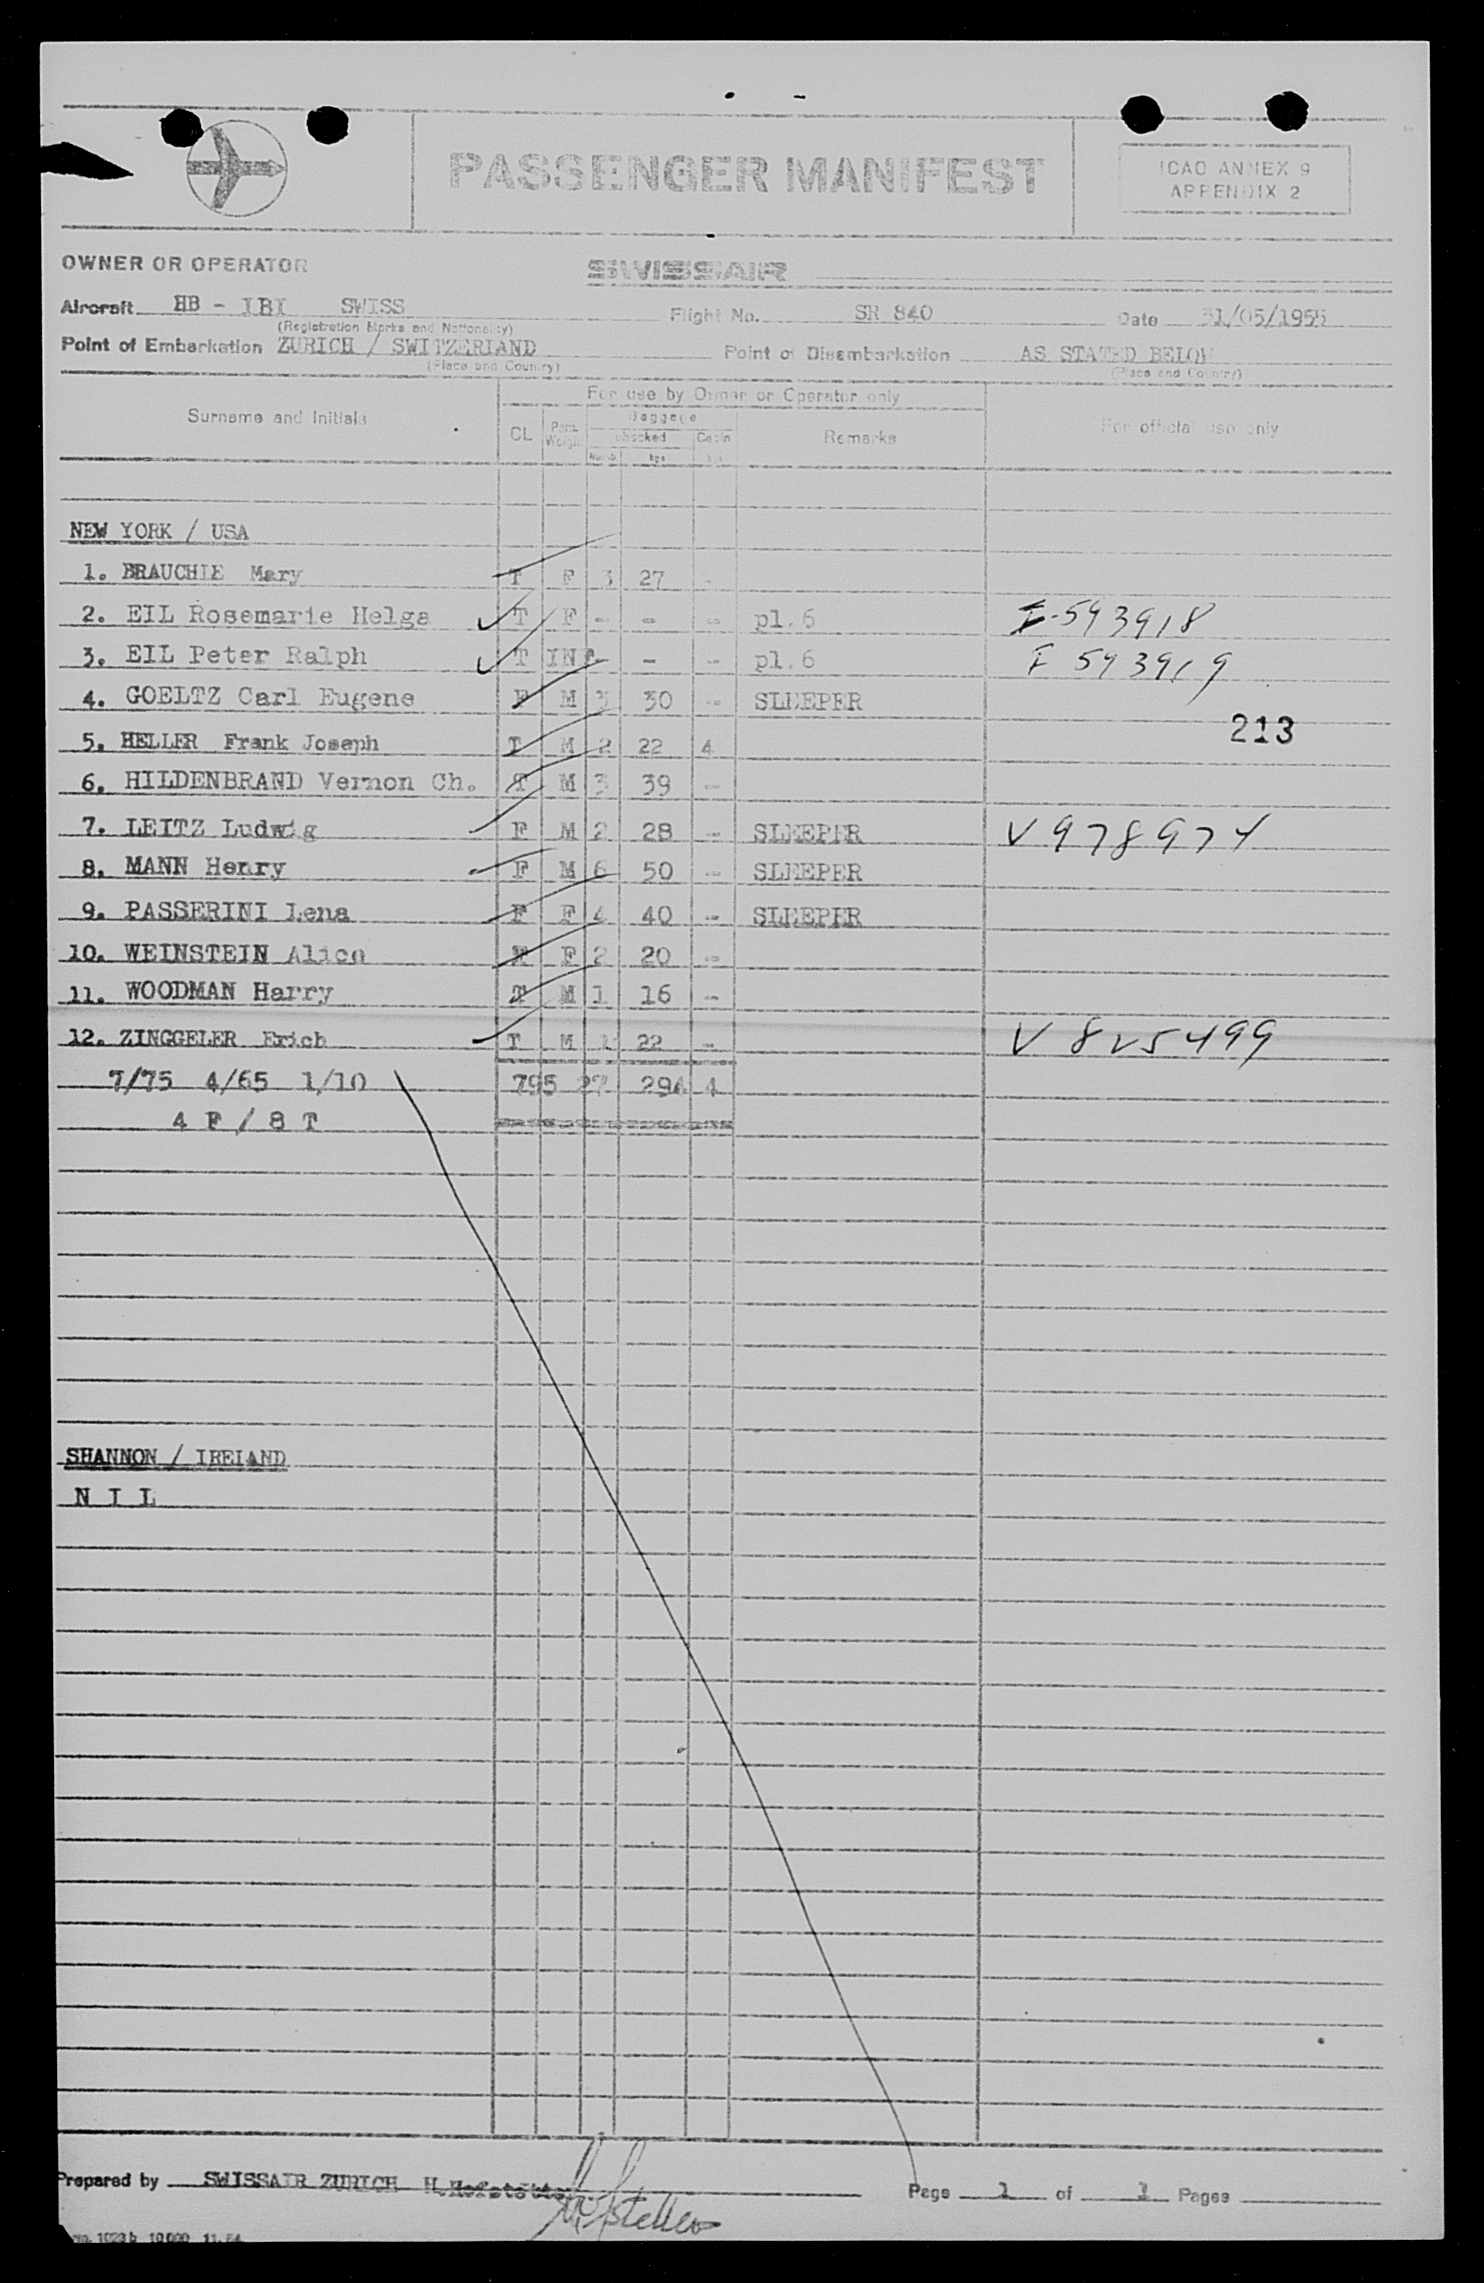 PASSENGER MANIFEST
ICAO ANNEX 9
APPENDIX 2
OWNER OR OPERATOR SWISSAIR
Aircraft HB - IBI SWISS Flight No. SR 840 Date 31/05/1955
(Registration Marks and Nationality)
Point of Embarkation ZURICH / SWITZERLAND Point of Disembarkation AS STATED BELOW
(Place and Country) (Place and Country)
Surname and Initials For use by Owner or Operator only For official use only
CL Pers. Weight Baggage checked Cabin Remarks
Numb. kgs kgs
NEW YORK / USA
1. BRAUCHIE Mary T F 3 27 -
2. EIL Rosemarie Helga T F - - - pl.6 I-593918
3. EIL Peter Ralph T INF. - - pl.6 I 593919
4. GOELTZ Carl Eugene F M 3 30 - SLEEPER
213
5. HELLER Frank Joseph T M 2 22 4
6. HILDENBRAND Vernon Ch. T M 3 39 -
7. LEITZ Ludwig F M 2 28 - SLEEPER V978974
8. MANN Henry F M 6 50 - SLEEPER
9. PASSERINI Lena F F 4 40 - SLEEPER
10. WEINSTEIN Alice T F 2 20 -
11. WOODMAN Harry T M 1 16 -
12. ZINGGELER Erich T M 1 22 - V 825499
7/75 4/65 1/10 795 27 294 4
4 F / 8 T
SHANNON / IRELAND
N I L
Prepared by SWISSAIR ZURICH H.Hofstetter Page 1 of 1 Pages
1023 b 10 000 11.54